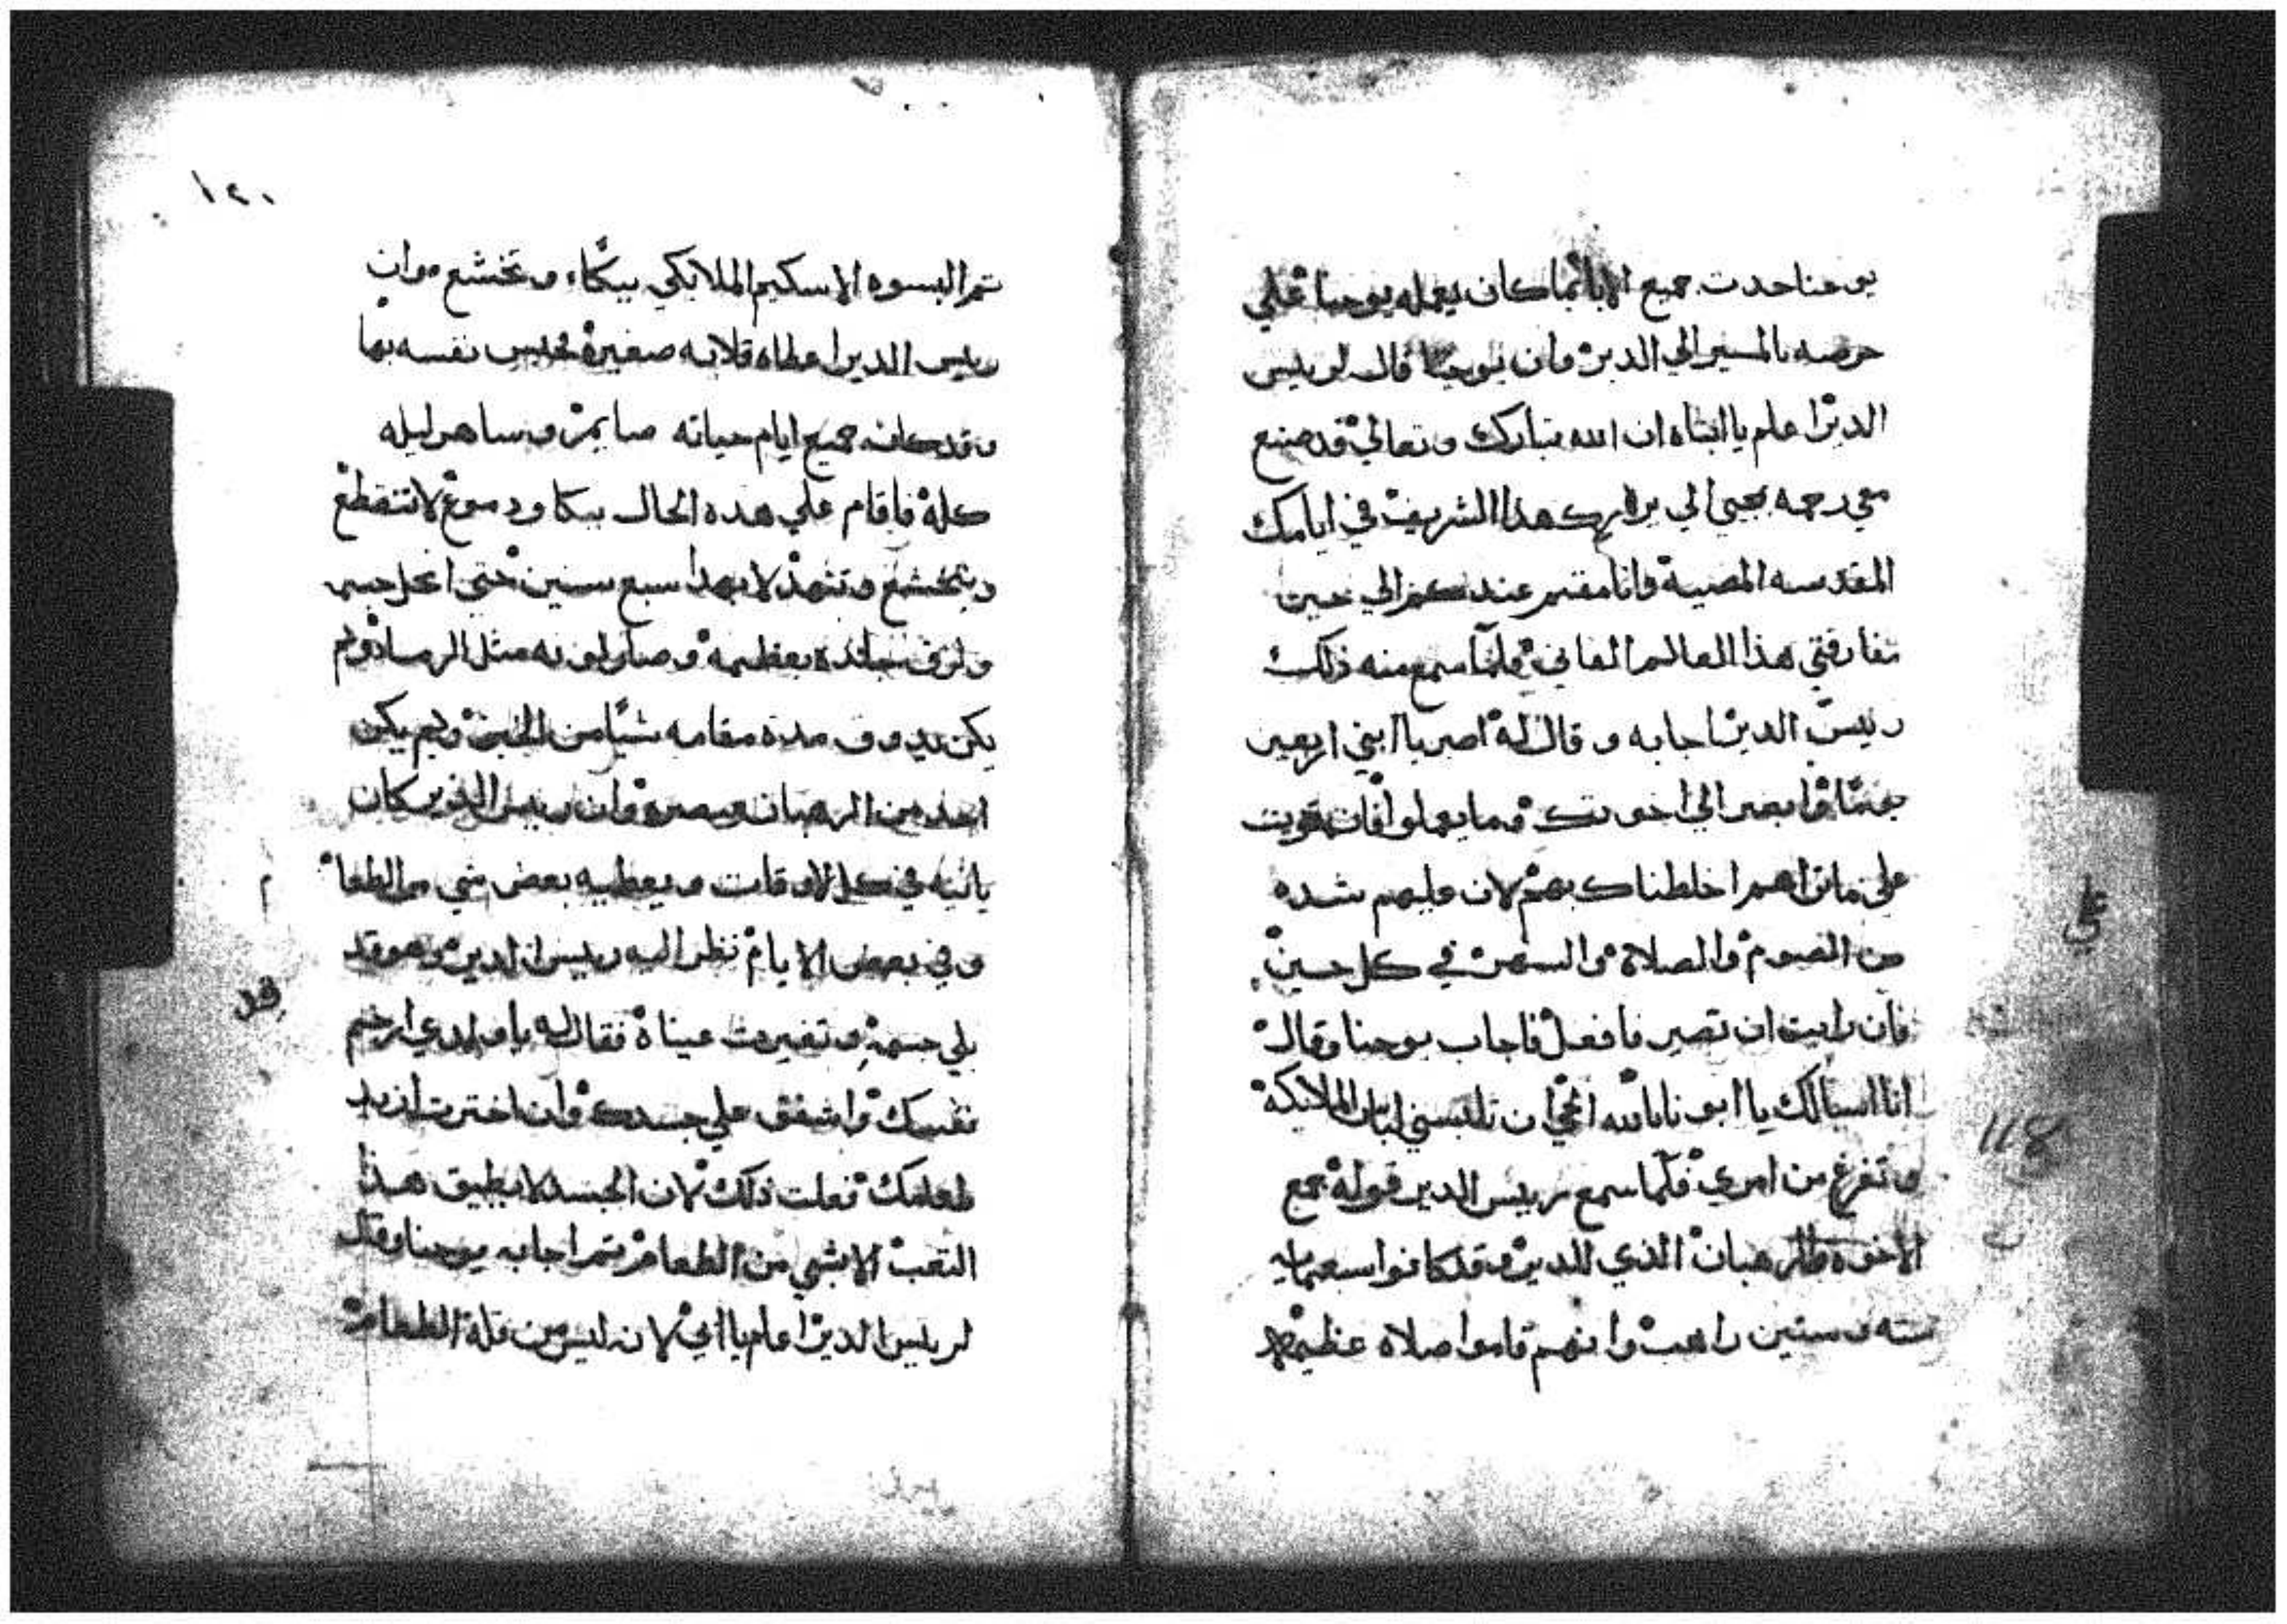 يوحنا حدت جميع الابا بما كان يعمله يوحنا علي
حرصه بالمسير الي الدير وان يوحنا قال لريس
الدير اعلم يا ابتاه ان الله تبارك وتعالي قد صنع
معي رحمه هذا الشريف في ايامك
المقدسه المضية وانا مقيم عندكم الي حين
تفارقني هذا العالم الفاني فلما سمع منه ذلك
رييس الدير اجابه وقال له اصبر يا ابني اربعين
وابصر الي اخوتك وما يعملوا فان قويت
علي ما تراهم اخلطناك بهم لان عليهم شده
من الصوم والصلاة والسهر في كل حين
فان رايت ان تصير فافعل فاجاب يوحنا وقال
انا اسالك يا ابونا بالله الحي ان تلبسني لباس الملايكة
وتفرغ من امري فلما سمع رييس الدير قوله جمع
الاخوه والرهبان الذي للدير وقد كانوا سبعمايه
سته وستين راهب وانهم قاموا صلاه عظيمه
علي
118
١٢٠
تم البسوه الاسكيم الملايكي ببكاء وتخشع وان
رييس الدير اعطاه قلايه صغيرة نفسه بها
وقد كانه جميع ايام حياته صايم وساهر ليله
كله فاقام علي هده الحال ببكا ودموع لا تنقطع
وتخشع وتنهد لا يهدا سبع سنين حتي انحل جسمه
ولزق جلده بعظمه وصار لونه مثل الرماد ولم
يكن يدوق مدة مقامه شيا من الخبز ولم يكن
احد من الرهبان يبصره وان رييس الدير كان
ياتيه في كل الاوقات ويعطيه بعض شي من الطعا
م
وفي بعض الايام نظر اليه رييس الدير وهو قد
قد
بلي جسمه وتغيرت عيناه فقال له يا ولدي ارحم
نفسك واشفق علي جسدك وان اخترت ازيد
طعامك فعلت ذلك لان الجسد لا يطيق هذا
التعب الا بشي من الطعام تم اجابه يوحنا وقال
لرييس الدير اعلم يا ابي لانه ليس من قلة الطعام